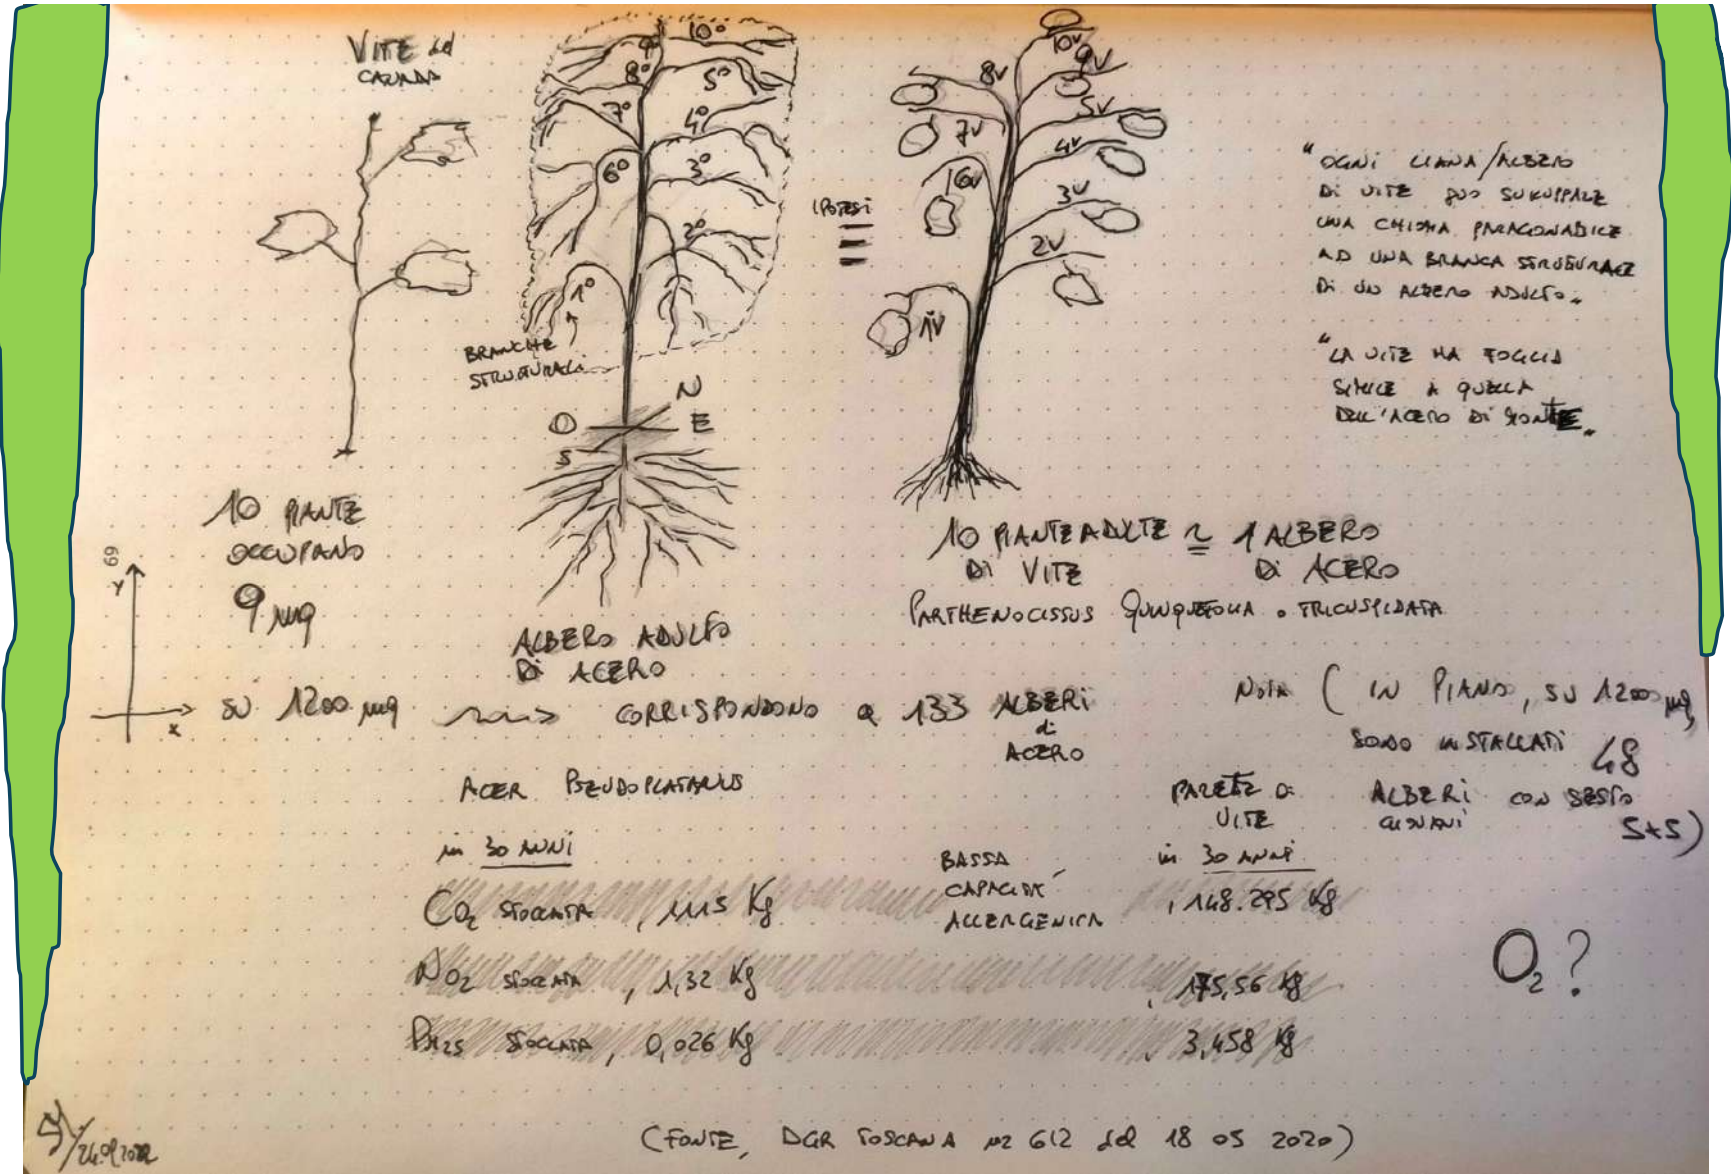 VITE del
CANADA
10°
9°
8°
5°
7°
4°
6°
3°
2°
1°
BRANCHE
STRUTTURALI
N
O E
S
IPOTESI
10V
9V
8V
5V
7V
4V
6V
3V
2V
1V
"OGNI LIANA/ALBERO
DI VITE PUO SVILUPPARE
UNA CHIOMA PARAGONABILE
AD UNA BRANCA STRUTTURALE
DI UN ALBERO ADULTO"
"LA VITE HA FOGLIA
SIMILE A QUELLA
DELL'ACERO DI MONTE"
10 PIANTE
OCCUPANO
9 mq
69
Y
X
ALBERO ADULTO
DI ACERO
10 PIANTE ADULTE ≅ 1 ALBERO
DI VITE DI ACERO
PARTHENOCISSUS QUINQUEFOLIA o TRICUSPIDATA
SU 1200 mq CORRISPONDONO a 133 ALBERI
di
ACERO
NOTA ( IN PIANO, SU 1200 mq,
SONO INSTALLATI 48
ALBERI CON SESTO
GIOVANI 5x5)
ACER PSEUDOPLATANUS
PARETE DI
VITE
in 30 ANNI
BASSA
CAPACITA'
ALLERGENICA
in 30 ANNI
CO2 STOCCATA, 1115 Kg , 148.295 Kg
NO2 STOCCATA, 1,32 Kg , 175,56 Kg
PM25 STOCCATA, 0,026 Kg , 3,458 Kg
O2?
(FONTE, DGR TOSCANA nr 612 del 18 05 2020)